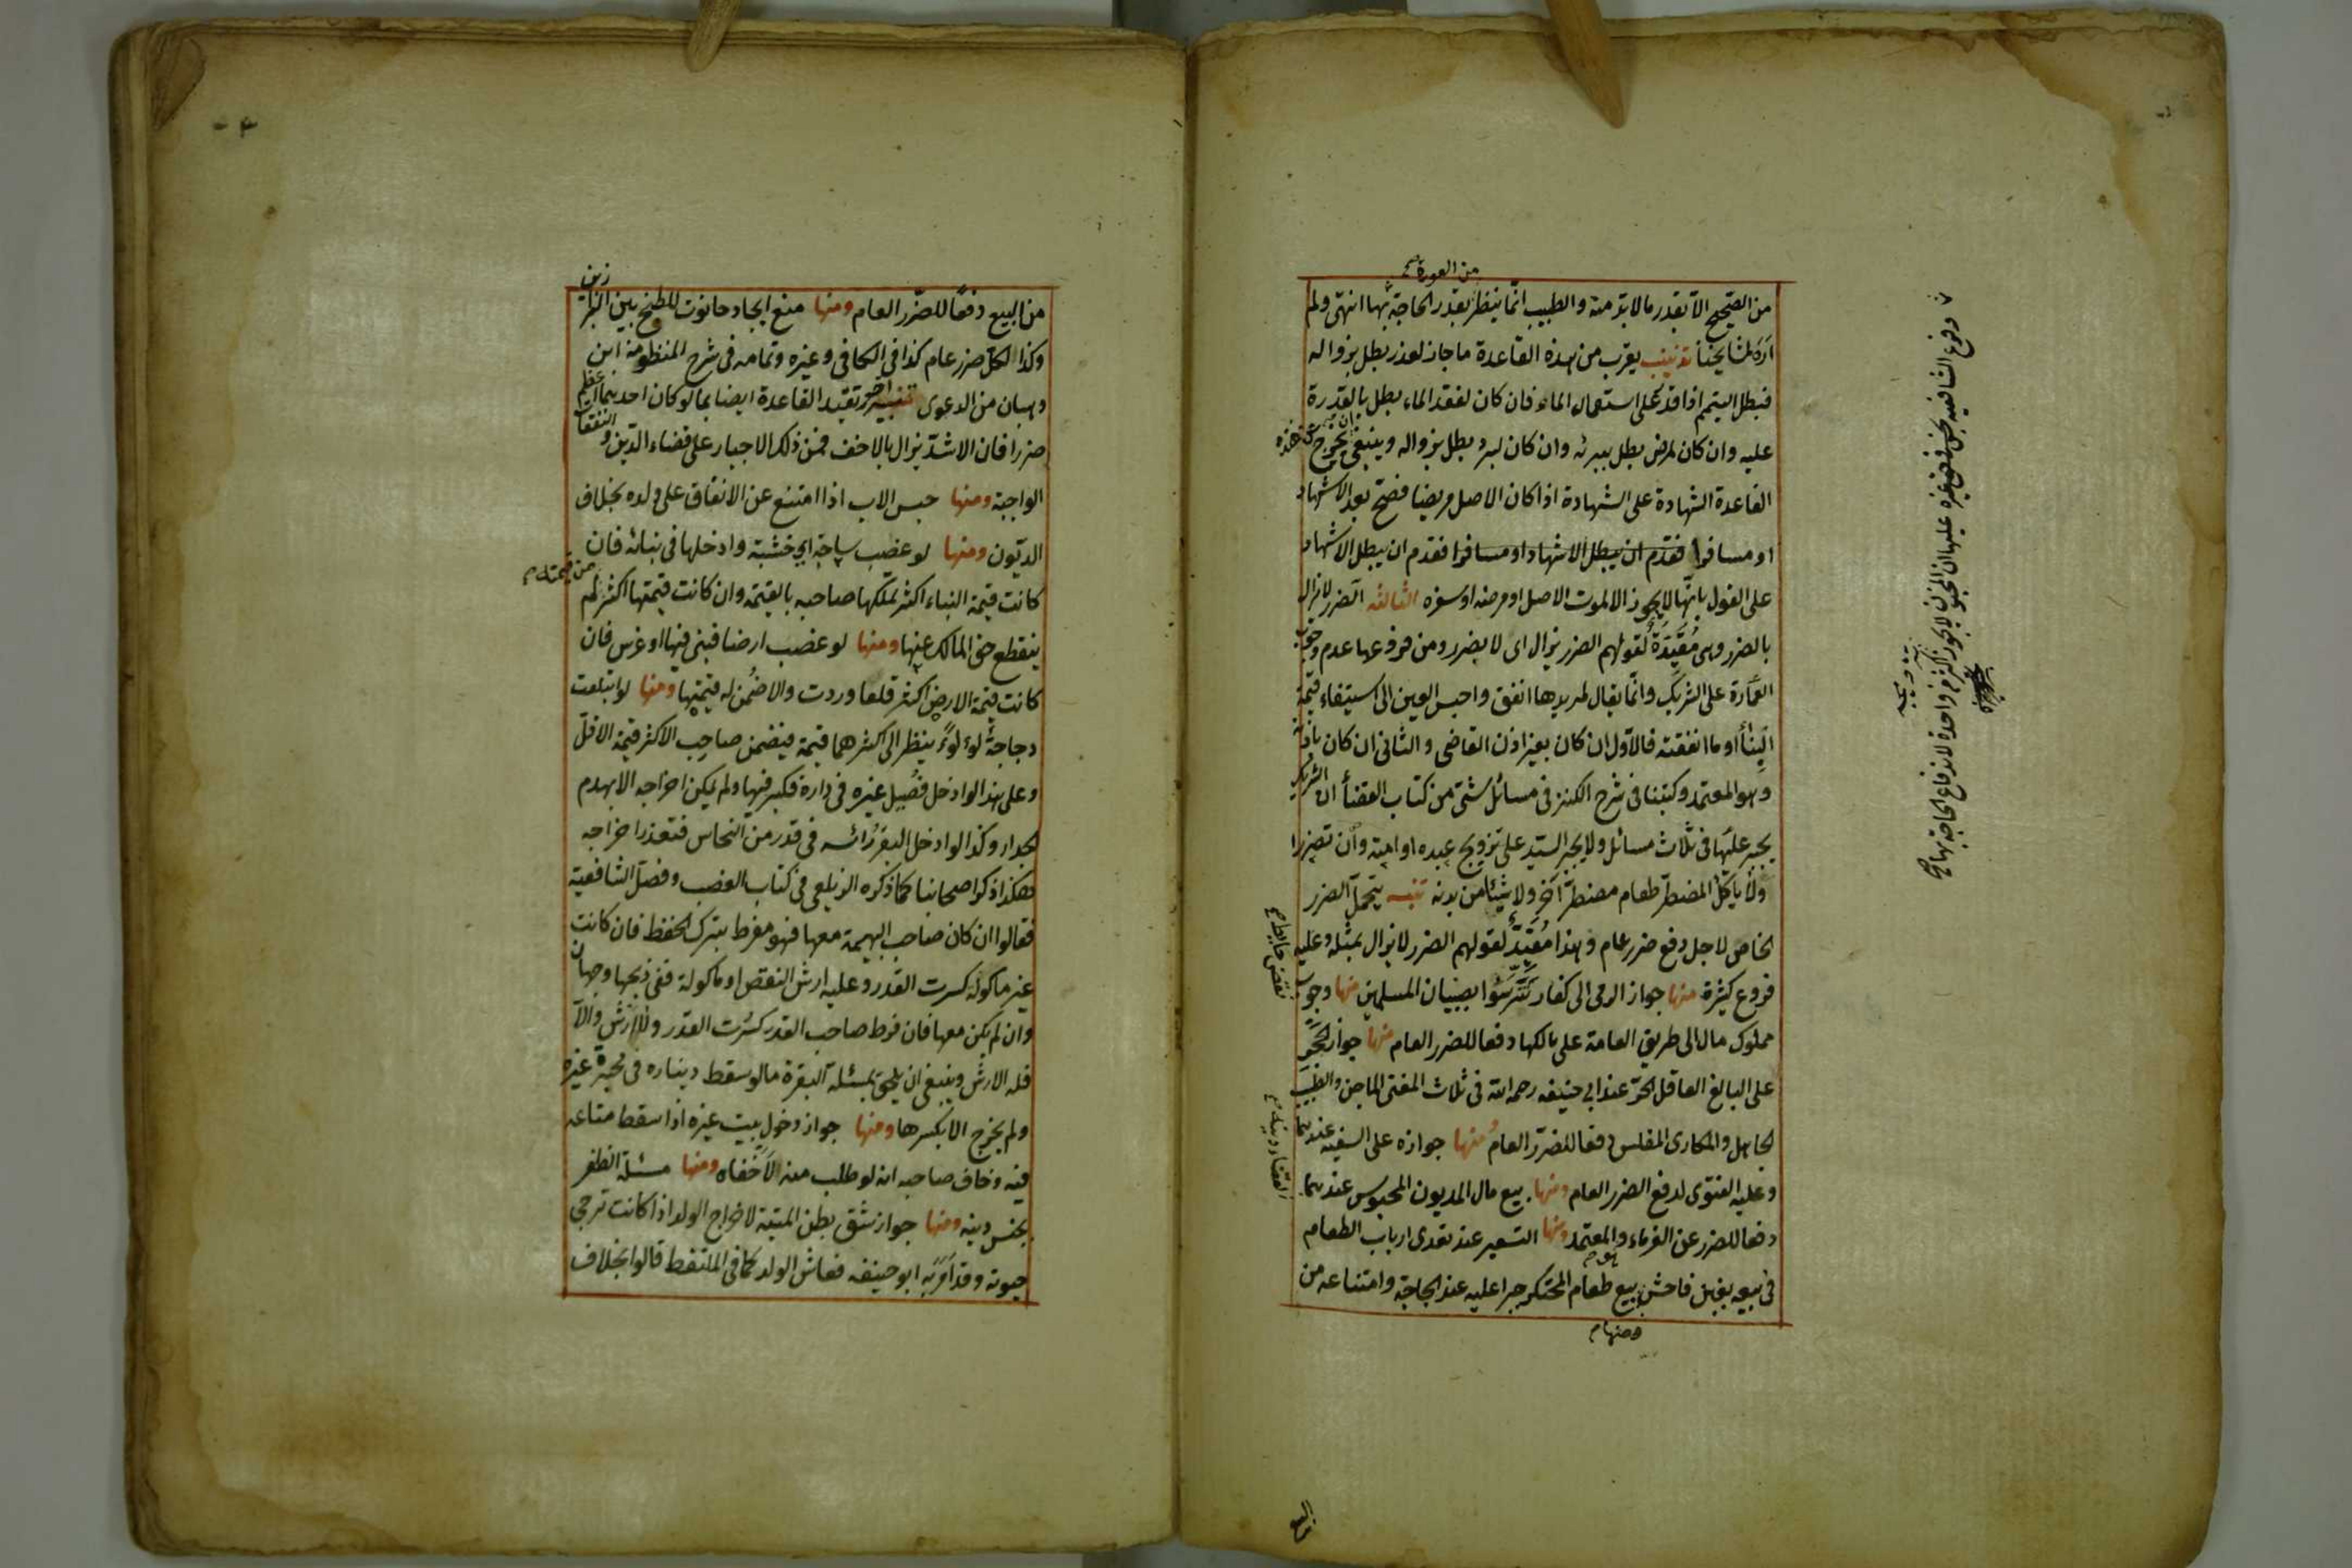 من العورة صح
من الصحيح الا بقدر ما لا بد منه والطبيب انما ينظر بقدر الحاجة بها انتهى ولم
اره لمشايخنا تذنيب يقرب من هذه القاعدة ما جاز لعذر بطل بزواله
فبطل التيمم اذا قدر على استعمال الماء فان كان لفقد الماء بطل بالقدرة
عليه وان كان لمرض بطل ببرئه وان كان لبرد بطل بزواله وينبغي ان يخرج على هذه
القاعدة الشهادة على الشهادة اذا كان الاصل مريضا فصح بعد الاشهاد
او مسافرا فقدم ان يبطل الاشهاد او مسافرا فقدم ان يبطل الاشهاد
على القول بانها لا يجوز الا لموت الاصل او مرضه او سفره الثالثه الضرر لا يزال
بالضرر وهى مقيدة لقولهم الضرر يزال اى لا بضرر ومن فروعها عدم وجوب
العمارة على الشريك وانما يقال لمريدها انفق واحبس العين الى استيفاء قيمة
البناء او ما انفقته فالاول ان كان بغير اذن القاضى والثانى ان كان باذنه
وهو المعتمد وكتبنا فى شرح الكنز فى مسائل شتى من كتاب القضاء ان الشريك
يجبر عليها فى ثلاث مسائل ولا يجبر السيد على تزويج عبده او امته وان تضررا
ولا ياكل المضطر طعام مضطر آخر ولا شيئا من بدنه تنبيه يتحمل الضرر
الخاص لاجل دفع ضرر عام وهذا مقيد لقولهم الضرر لا يزال بمثله وعليه
فروع كثيرة منها جواز الرمى الى كفار تترسوا بصبيان المسلمين منها وجوب
نقض حائط صح
مملوك مال الى طريق العامة على مالكها دفعا للضرر العام منها جواز الحجر
على البالغ العاقل الحر عند ابي حنيفه رحمه الله فى ثلاث المفتى الماجن والطبيب
الجاهل والمكارى المفلس دفعا للضرر العام منها جوازه على السفيه عندهما
وعليه الفتوى لدفع الضرر العام ومنها بيع مال المديون المحبوس عندهما
لقضاء دينه صح
دفعا للضرر عن الغرماء والمعتمد ومنها التسعير عند تعدى ارباب الطعام
فى بيعه بغبن فاحش بيع طعام المحتكر جبرا عليه عند الحاجة وامتناعه من
ومنها
من البيع دفعًا للضرر العام ومنها منع ايجاد حانوت للطبخ بين البزازين
وكذا الكل ضرر عام كذا فى الكافى وغيره وتمامه فى شرح المنظومة ابن
وهبان من الدعوى تنبيه آخر تقيد القاعدة ايضا بما لو كان احدهما اعظم
ضررا فان الاشد يزال بالاخف فمن ذلك الاجبار على قضاء الدين والنفقات
الواجبة ومنها حبس الاب اذا امتنع عن الانفاق على ولده بخلاف
الديون ومنها لو غصب ساجة اي خشبة وادخلها فى بنائه فان
كانت قيمة البناء اكثر تملكها صاحبه بالقيمة وان كانت قيمتها اكثر لم
من قيمته
ينقطع حق المالك عنها ومنها لو غصب ارضا فبنى فيها او غرس فان
كانت قيمة الارض اكثر قلعا وردت والا ضمن له قيمتها ومنها لو ابتلعت
دجاجة لؤلؤة ينظر الى اكثرهما قيمة فيضمن صاحب الاكثر قيمة الاقل
وعلى هذا لو ادخل فصيل غيره فى داره فكبر فيها ولم يكن اخراجه الا بهدم
الجدار وكذا لو ادخل البقر راسه فى قدر من النحاس فتعذر اخراجه
هكذا ذكر اصحابنا كما ذكره الزيلعى فى كتاب الغصب وفصل الشافعية
فقالوا ان كان صاحب البهيمة معها فهو مفرط بترك الحفظ فان كانت
غير ماكولة كسرت القدر وعليه ارش النقص او ماكولة ففى ذبحها وجهان
وان لم يكن معها فان فرط صاحب القدر كسرت القدر ولا ارش والا
فله الارش وينبغى ان يلحق بمسئلة البقرة ما لو سقط ديناره فى محبرة غيره
ولم يخرج الا بكسرها ومنها جواز دخول بيت غيره اذا سقط متاعه
فيه وخاف صاحبه انه لو طلب منه الاخفاه ومنها مسئلة الظفر
بجنس دينه ومنها جواز شق بطن الميتة لاخراج الولد اذا كانت ترجى
حيوته وقد امر به ابو حنيفه فعاش الولد كما فى الملتقط قالوا بخلاف